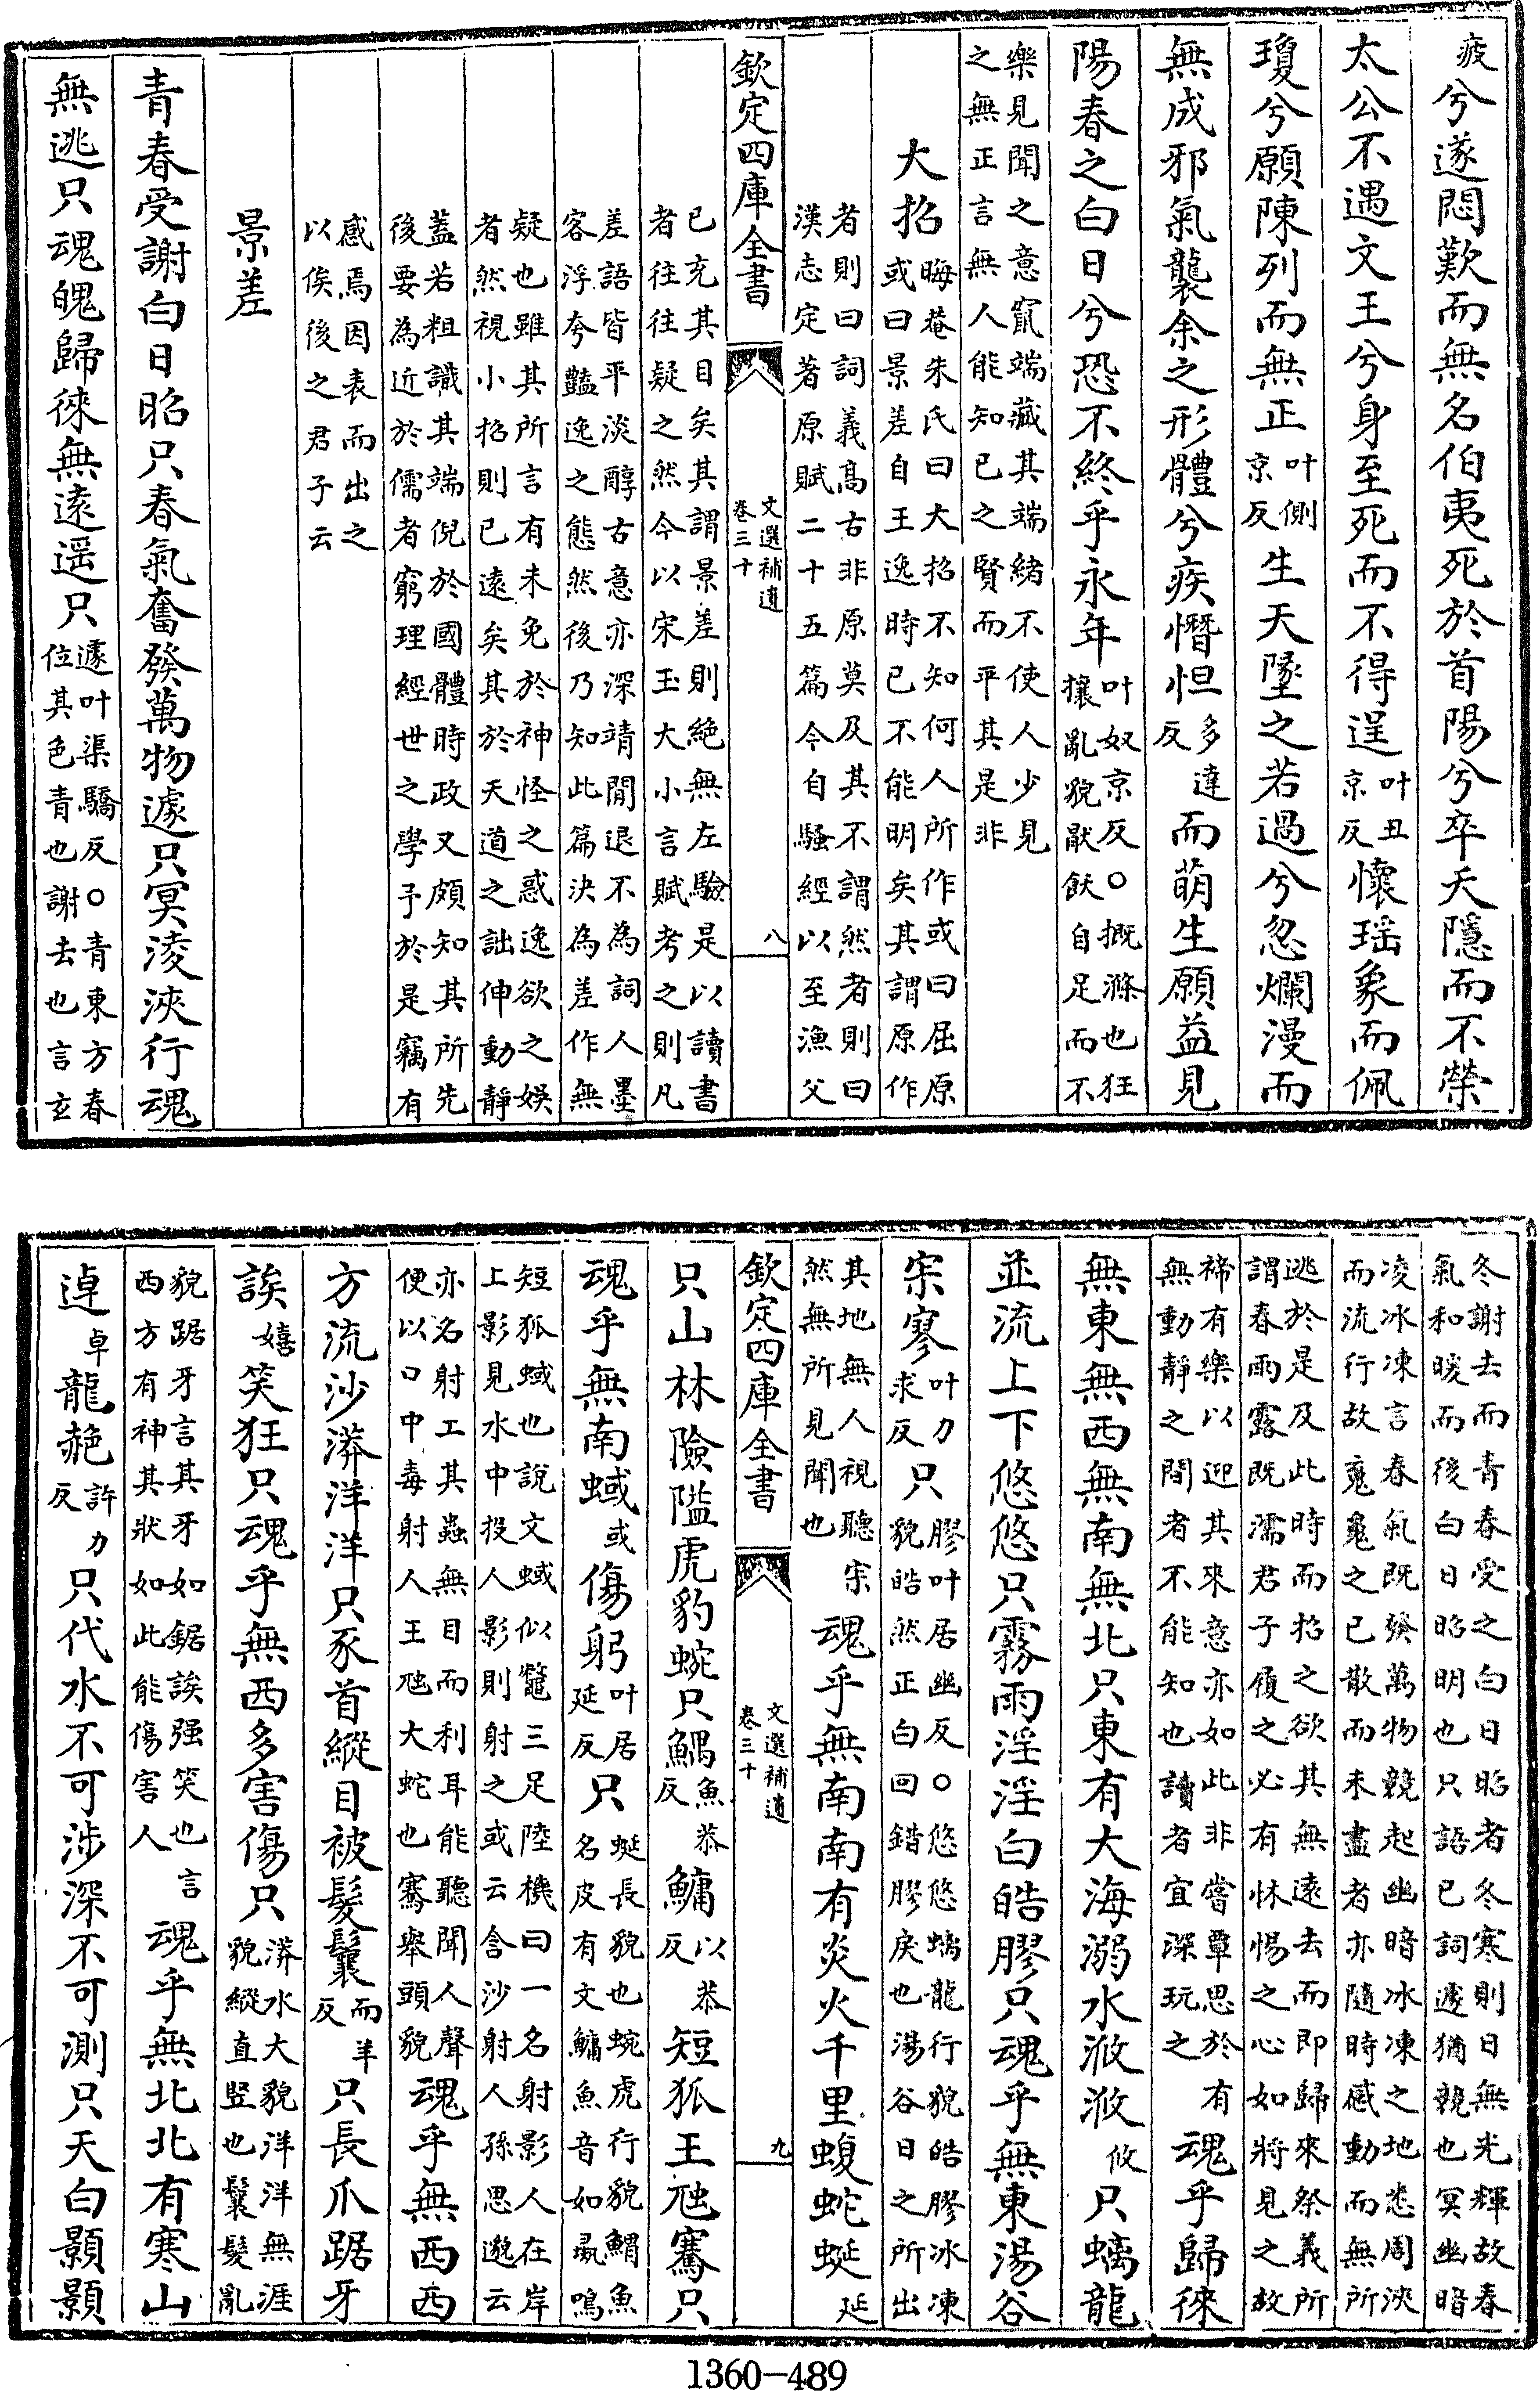 疲兮遂悶歎而無名伯夷死於首陽兮卒夭隱而不榮
太公不遇文王兮身至死而不得逞叶丑京反懷瑶象而佩
瓊兮願陳列而無正叶側京反生天墬之若過兮忽爛漫而
無成邪氣襲余之形體兮疾憯怛多達反而萌生願益見
陽春之白日兮恐不終乎永年叶奴京反○摡滌也狂攘亂貌猒飫自足而不
樂見聞之意竄端藏其端緒不使人少見之無正言無人能知已之賢而平其是非
大招晦菴朱氏曰大招不知何人所作或曰屈原或曰景差自王逸時已不能明矣其謂原作
者則曰詞義高古非原莫及其不謂然者則曰漢志定著原賦二十五篇今自騷經以至漁父
欽定四庫全書
文選補遺
卷三十
八
已充其目矣其謂景差則絶無左驗是以讀書者往往疑之然今以宋玉大小言賦考之則凡
差語皆平淡醇古意亦深靖閒退不為詞人墨客浮夸豔逸之態然後乃知此篇決為差作無
疑也雖其所言有未免於神怪之惑逸欲之娛者然視小招則已逺矣其於天道之詘伸動靜
蓋若粗識其端倪於國體時政又頗知其所先後要為近於儒者窮理經世之學予於是竊有
感焉因表而出之以俟後之君子云
景差
青春受謝白日昭只春氣奮發萬物遽只冥淩浹行魂
無逃只魂魄歸徠無逺遥只遽叶渠驕反○青東方春位其色青也謝去也言玄
冬謝去而青春受之白日昭者冬寒則日無光輝故春氣和暖而後白日昭明也只語已詞遽猶競也冥幽暗
凌冰凍言春氣既發萬物競起幽暗冰凍之地悉周浹而流行故䰟䰟之已散而未盡者亦隨時感動而無所
逃於是及此時而招之欲其無逺去而即歸來祭義所謂春雨露既濡君子履之必有怵惕之心如將見之故
禘有樂以迎其來意亦如此非嘗覃思於有無動靜之間者不能知也讀者宜深玩之魂乎歸徠
無東無西無南無北只東有大海溺水浟浟攸只螭龍
並流上下悠悠只霧雨淫淫白皓膠只魂乎無東湯谷
宗寥叶力求反只膠叶居幽反○悠悠螭龍行貌皓膠冰凍貌皓然正白回錯膠戾也湯谷日之所出
其地無人視聽宗然無所見聞也魂乎無南南有炎火千里蝮蛇蜒延
欽定四庫全書
文選補遺
卷三十
九
只山林險隘虎豹蜿只鰅魚恭反鱅以恭反短狐王虺騫只
魂乎無南蜮或傷躬叶居延反只蜒長貌也蜿虎行貌鰅魚名皮有文鱅魚音如彘鳴
短狐蜮也說文蜮似鼈三足陸機曰一名射影人在岸上影見水中投人影則射之或云含沙射人孫思邈云
亦名射工其蟲無目而利耳能聽聞人聲便以口中毒射人王虺大蛇也騫舉頭貌魂乎無西西
方流沙漭洋洋只豕首縱目被髮鬤而羊反只長爪踞牙
誒嬉笑狂只魂乎無西多害傷只漭水大貌洋洋無涯貌縱直竪也鬤髮亂
貌踞牙言其牙如鋸誒强笑也言西方有神其狀如此能傷害人魂乎無北北有寒山
逴卓龍赩許力反只代水不可涉深不可測只天白顥顥
1360-489